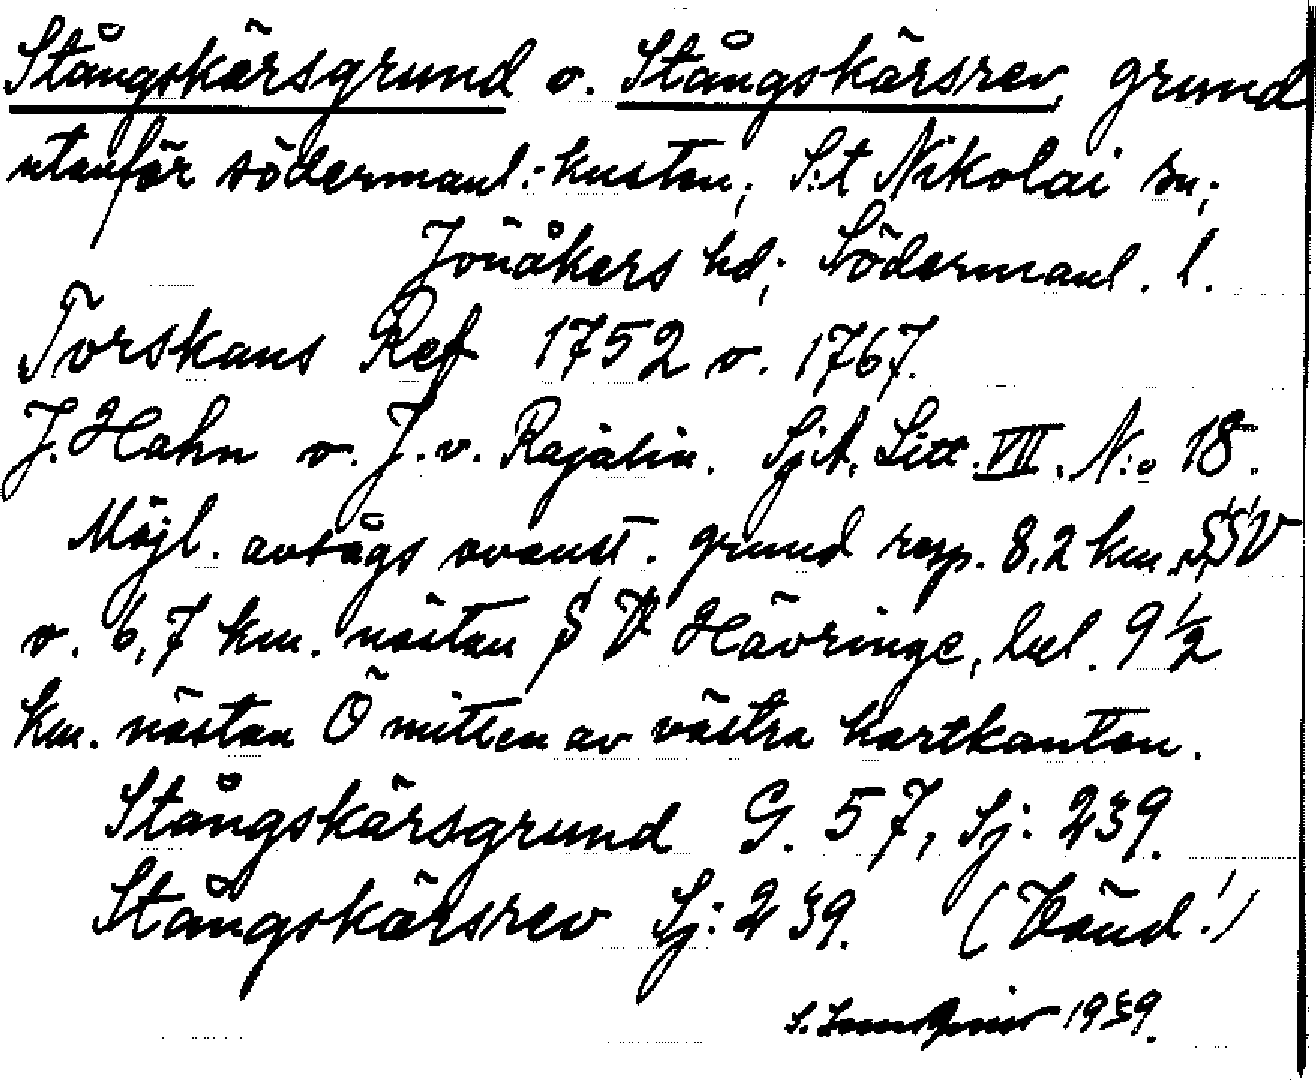 Stångskärsgrund o. Stångskärsrev, grund
utanför södermanl. kusten; S:t Nikolai sn;
Jönåkers hd; Södermanl. l.
Torskans Ref 1752 o. 1767.
J. Hahn o. J. v. Rajalin. SjA. Litt. VII. N:o 18.
Möjl. avsågs ovanst. grund resp. 8,2 km. SSV
o. 6,7 km. nästan SV Hävringe, bel. 9 1/2
km. nästan Ö mitten av västra kartkanten.
Stångskärsgrund G. 57, Sj: 239.
Stångskärsrev Sj: 239. (Vänd!)
1939.